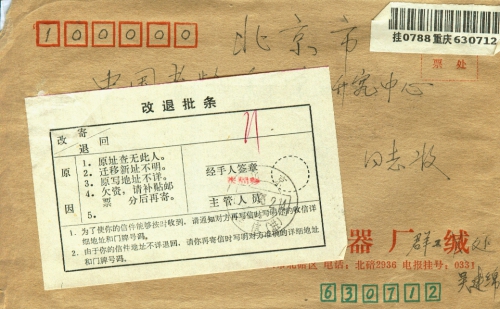 100000
北京市
挂0788 重庆 630712
票处
中国
研究中心
改退批条
改寄
退回
原因
1. 原址查无此人。
2. 迁移新址不明。
3. 原写地址不详。
4. 欠资,请补贴邮票 分后再寄。
5.
经手人签章
主管人员
同志收
1. 为了使你的信件能够按时收到,请通知对方再写信时写明你的收信详细地址和门牌号码。
2. 由于你的信件地址不详退回,请你再寄信时写明对方准确的详细地址和门牌号码。
器厂 缄
区 电话:北碚2936 电报挂号:0331
630712